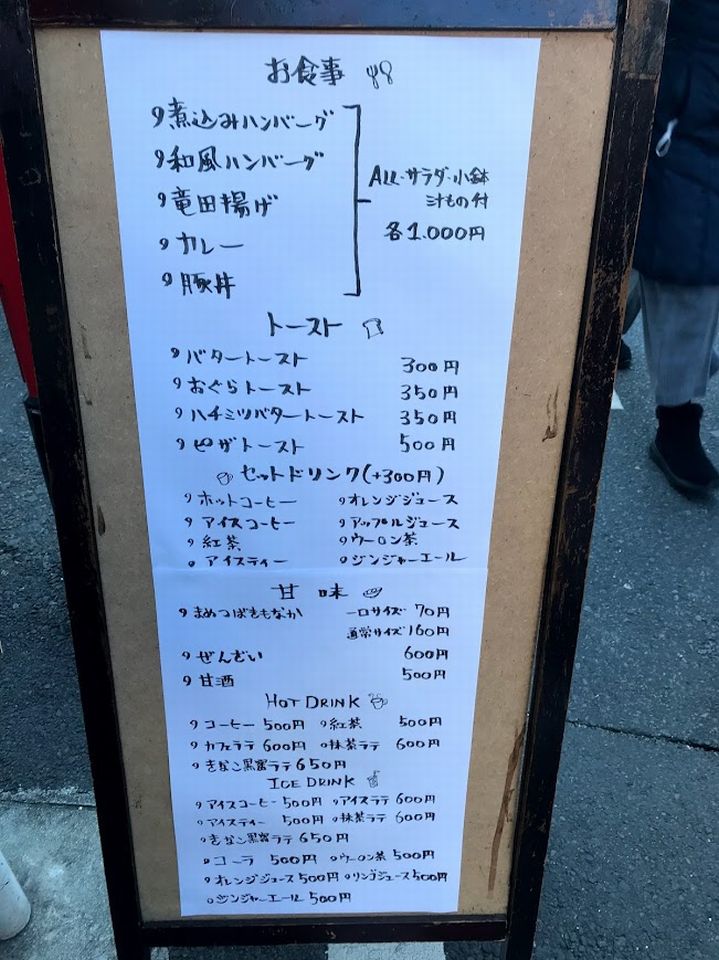 お食事
煮込みハンバーグ
和風ハンバーグ
竜田揚げ
カレー
豚丼
ALL・サラダ・小鉢
汁もの付
各1.000円
トースト
バタートースト 300円
おぐらトースト 350円
ハチミツバタートースト 350円
ピザトースト 500円
セットドリンク(+300円)
ホットコーヒー オレンジジュース
アイスコーヒー アップルジュース
紅茶 ウーロン茶
アイスティー ジンジャーエール
甘味
まめつばきもなか 一口サイズ 70円
通常サイズ 160円
ぜんざい 600円
甘酒 500円
HOT DRINK
コーヒー 500円 紅茶 500円
カフェラテ 600円 抹茶ラテ 600円
きなこ黒蜜ラテ 650円
ICE DRINK
アイスコーヒー 500円 アイスラテ 600円
アイスティー 500円 抹茶ラテ 600円
きなこ黒蜜ラテ 650円
コーラ 500円 ウーロン茶 500円
オレンジジュース 500円 リンゴジュース 500円
ジンジャーエール 500円